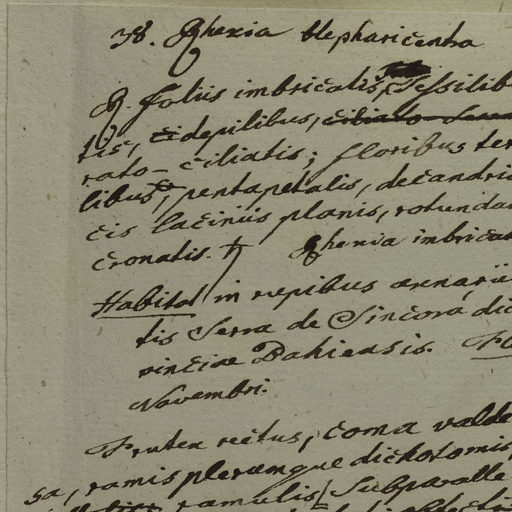 38. Rhexia blepharicentra
R. foliis imbricatis, sessilib
tis, depilibus, ciliato
rato-ciliatis; floribus ter
libus, pentapetalis, decandri
cis laciniis planis, rotunda
cronatis. ♄ Rhexia imbricat
Habitat in rupibus arenarii
tis Serra de Sincorá dic
vinciae Bahiensis. Fl
Novembri.
Frutex rectus, coma valde
sa, ramis plerumque dichotomis
ramulis subparalle